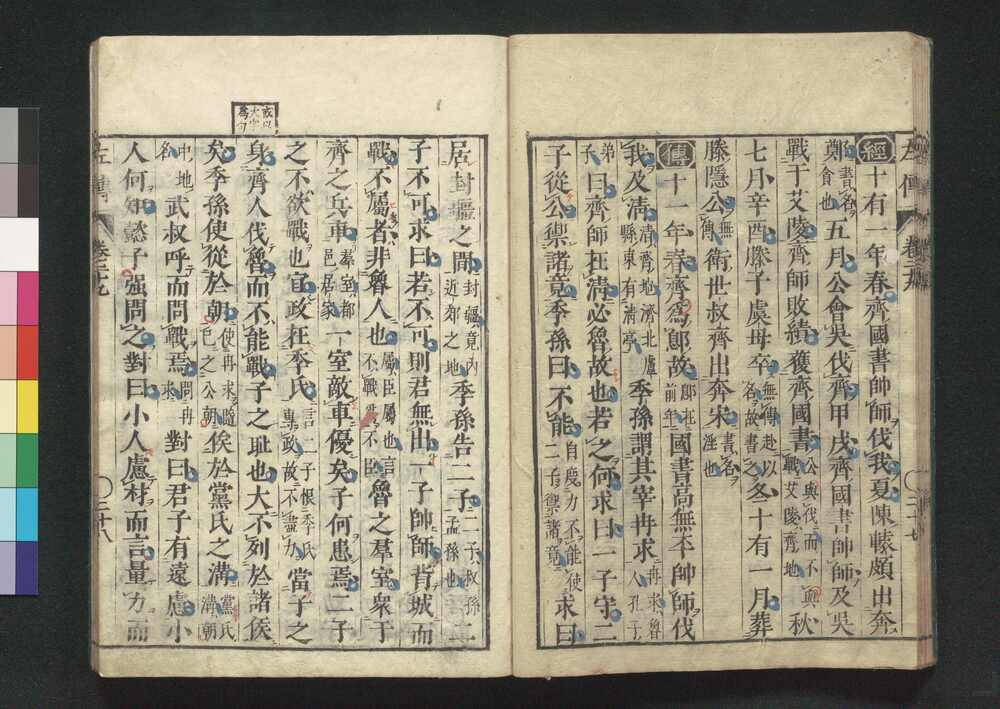 左傳　卷二十九　二十七
經十有一年春齊國書帥師伐我夏陳轅頗出奔
鄭書名貪也五月公會吳伐齊甲戌齊國書帥師及吳
戰于艾陵齊師敗績獲齊國書公與伐而不與戰艾陵齊地秋
七月辛酉滕子虞母卒無傳赴以名故書之冬十有一月葬
滕隱公無傳衛世叔齊出奔宋書名淫也
傳十一年春齊爲鄎故鄎在前年國書高無㔻帥師伐
我及淸淸齊地濟北盧縣東有淸亭季孫謂其宰冉求冉求魯人孔子
弟子曰齊師在淸必魯故也若之何求曰一子守二
子從公禦諸竟季孫曰不能自度力不能使二子禦諸竟求曰
居封疆之間封疆竟內近郊之地季孫告二子二子叔孫孟孫也二
子不可求曰若不可則君無出一子帥師背城而
戰不屬者非魯人也屬臣屬也言不戰爲不臣魯之羣室衆于
齊之兵車羣室都邑居家一室敵車優矣子何患焉二子
之不欲戰也宜政在季氏言二子恨季氏專政故不盡力當子之
身齊人伐魯而不能戰子之耻也大不列於諸侯
矣季孫使從於朝使冉求隨己之公朝俟於黨氏之溝黨氏溝朝
中地名武叔呼而問戰焉問冉求對曰君子有遠慮小
人何知懿子強問之對曰小人慮材而言量力而
左傳　卷二十九　二十八